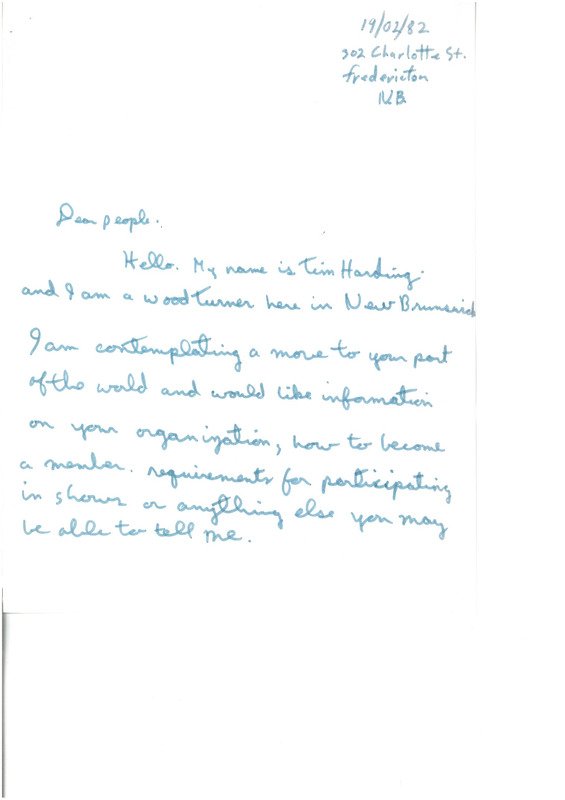 19/02/82
302 Charlotte St.
Fredericton
N.B.
Dear people.
Hello. My name is Tim Harding.
and I am a wood turner here in New Brunswick
I am contemplating a move to your part
of the world and would like information
on your organization, how to become
a member. requirements for participating
in shows or anything else you may
be able to tell me.